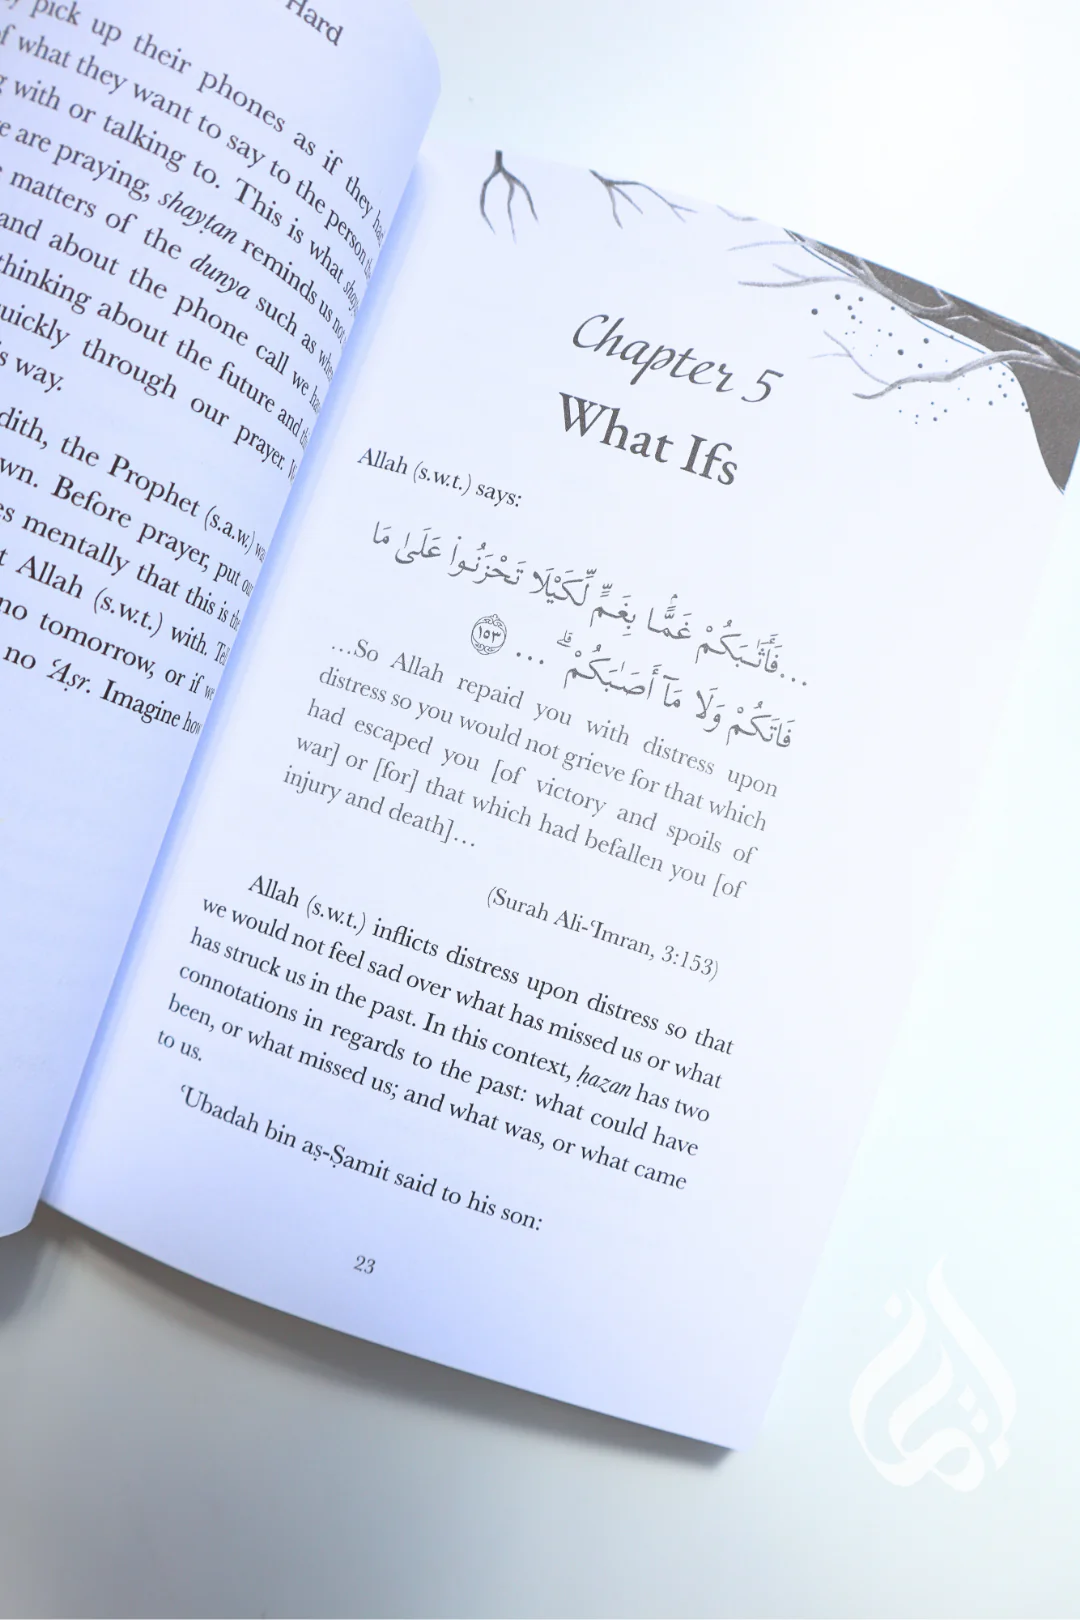 Hard
pick up their phones as if they
of what they want to say to the person
with or talking to. This is what
are praying, shayṭan reminds us
matters of the dunya such as
and about the phone call we
thinking about the future and
quickly through our prayer.
way.
the Prophet (s.a.w.)
Before prayer, put
mentally that this is
Allah (s.w.t.) with.
no tomorrow, or if
no ʿAṣr. Imagine
Chapter 5
What Ifs
Allah (s.w.t.) says:
...فَأَثَـٰبَكُمْ غَمًّۢا بِغَمٍّ لِّكَيْلَا تَحْزَنُوا۟ عَلَىٰ مَا
فَاتَكُمْ وَلَا مَآ أَصَـٰبَكُمْ ۗ ... ١٥٣
…So Allah repaid you with distress upon
distress so you would not grieve for that which
had escaped you [of victory and spoils of
war] or [for] that which had befallen you [of
injury and death]…
(Surah Ali-ʿImran, 3:153)
Allah (s.w.t.) inflicts distress upon distress so that
we would not feel sad over what has missed us or what
has struck us in the past. In this context, ḥazan has two
connotations in regards to the past: what could have
been, or what missed us; and what was, or what came
to us.
ʿUbadah bin aṣ-Ṣamit said to his son:
23